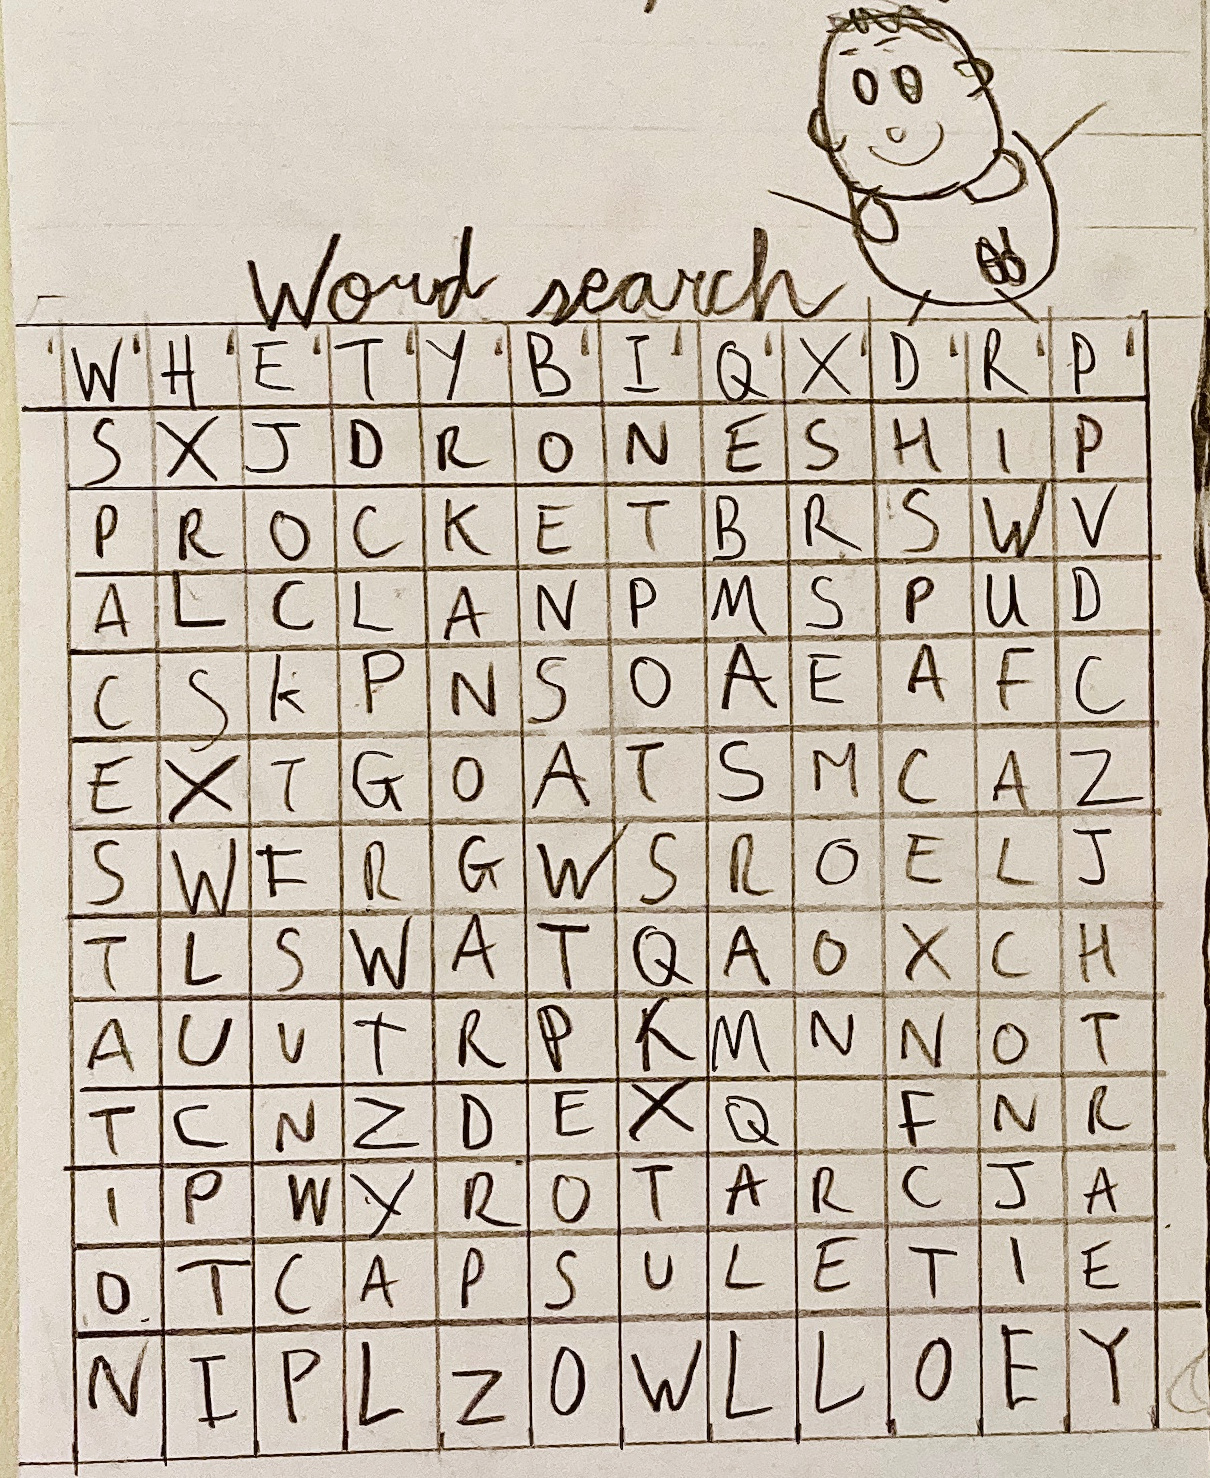 Word search
W H E T Y B I Q X D R P
S X J D R O N E S H I P
P R O C K E T B R S W V
A L C L A N P M S P U D
C S K P N S O A E A F C
E X T G O A T S M C A Z
S W F R G W S R O E L J
T L S W A T Q A O X C H
A U U T R P K M N N O T
T C N Z D E X Q F N R
I P W Y R O T A R C J A
O T C A P S U L E T I E
N I P L Z O W L L O E Y